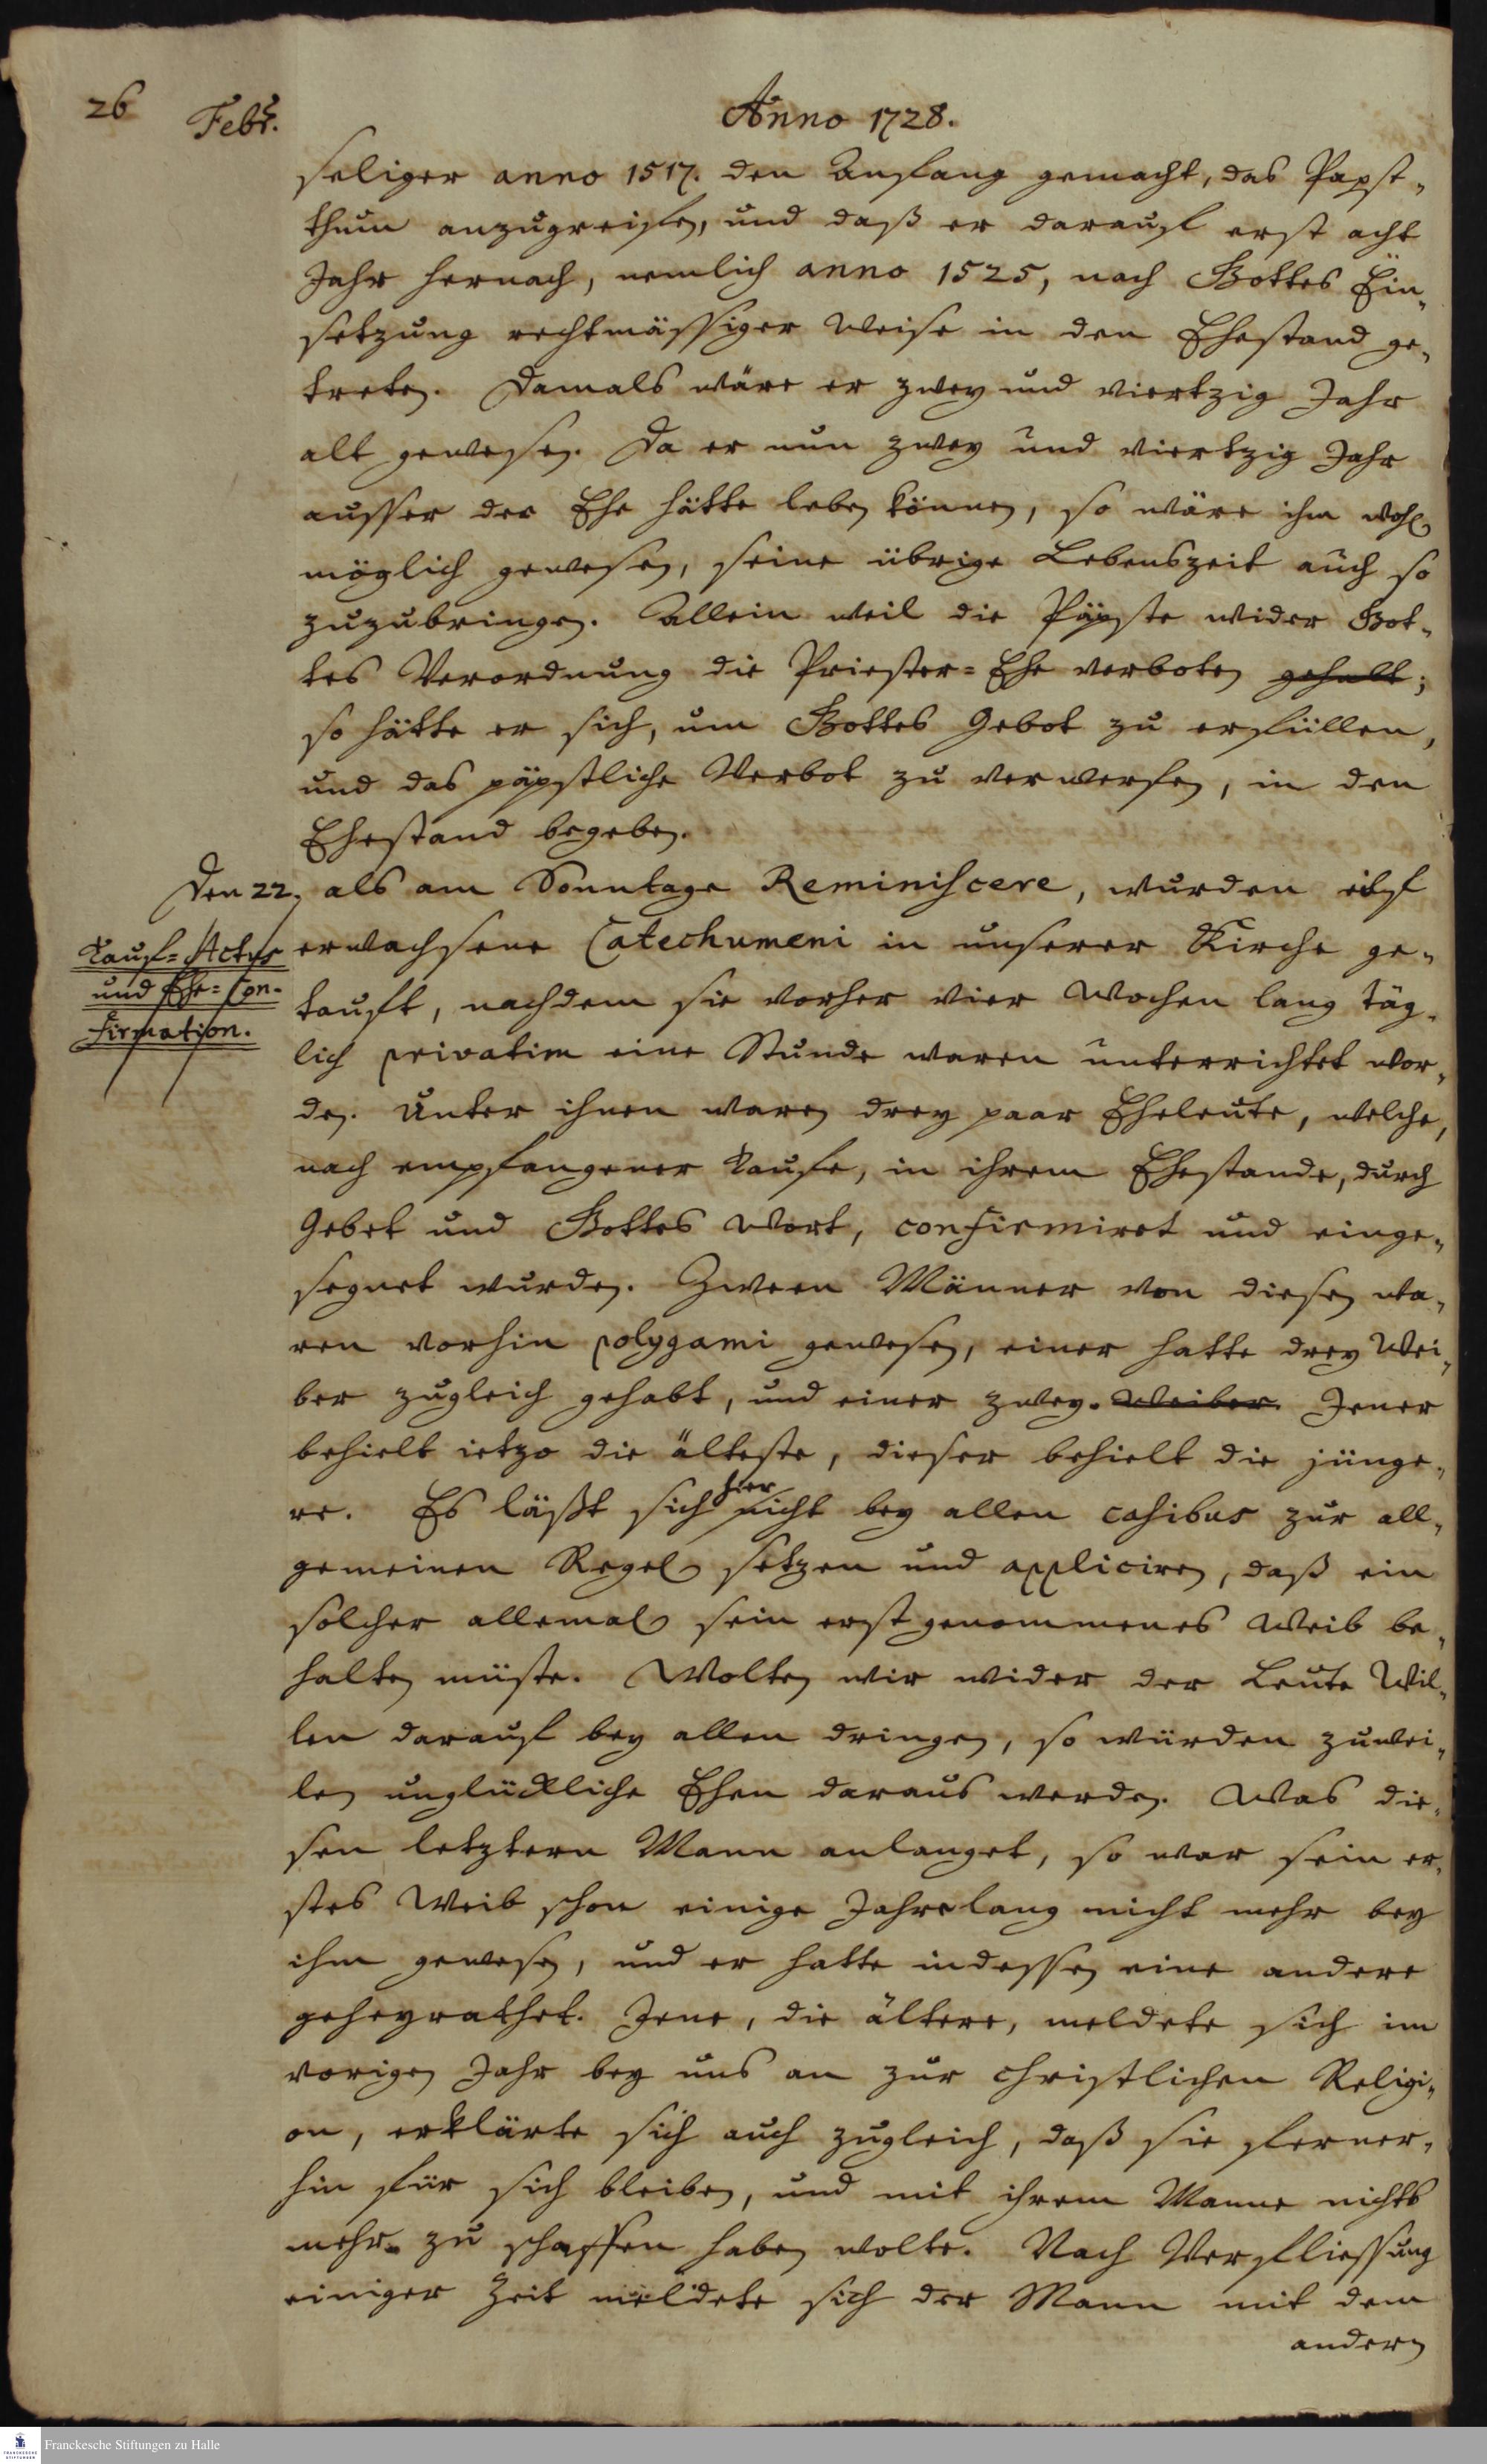 26 Febr. Anno 1728.
seliger anno 1517. den Anfang gemacht, das Papst-
thum anzugreifen, und daß er darauf erst acht
Jahr hernach, nemlich anno 1525, nach Gottes Ein-
setzung rechtmässiger Weise in den Ehestand ge-
treten. Damals wäre er zwey und viertzig Jahr
alt gewesen. Da er nun zwey und viertzig Jahr
ausser der Ehe hätte leben können, so wäre ihm wohl
möglich gewesen, seine übrige Lebenszeit auch so
zuzubringen. Allein weil die Päpste wider Got-
tes Verordnung die Priester-Ehe verboten gehabt;
so hätte er sich, um Gottes Gebot zu erfüllen,
und das päpstliche Verbot zu verwerfen, in den
Ehestand begeben.
Den 22, als am Sonntage Reminiscere, wurden eilf
Tauf-Actus
und Ehe-Con-
firmation.
erwachsene Catechumeni in unserer Kirche ge-
tauft, nachdem sie vorher vier Wochen lang täg-
lich privatim eine Stunde waren unterrichtet wor-
den. Unter ihnen waren drey paar Eheleute, welche,
nach empfangener Taufe, in ihrem Ehestande, durch
Gebet und Gottes Wort, confirmiret und einge-
segnet wurden. Zween Männer von diesen wa-
ren vorhin polygami gewesen, einer hatte drey Wei-
ber zugleich gehabt, und einer zwey. Weiber. Jener
behielt ietzo die älteste, dieser behielt die jünge-
re. Es läßt sich hier nicht bey allen casibus zur all-
gemeinen Regel setzen und appliciren, daß ein
solcher allemal sein erst genommenes Weib be-
halten müste. Wolten wir wider der Leute Wil-
len darauf bey allen dringen, so würden zuwei-
len unglückliche Ehen daraus werden. Was die-
sen letztern Mann anlanget, so war sein er-
stes Weib schon einige Jahre lang nicht mehr bey
ihm gewesen, und er hatte indessen eine andere
geheyrathet. Jene, die ältere, meldete sich im
vorigen Jahr bey uns an zur christlichen Religi-
on, erklärte sich auch zugleich, daß sie ferner-
hin für sich bleiben, und mit ihrem Manne nichts
mehr zu schaffen haben wolte. Nach Verfliessung
einiger Zeit meldete sich der Mann mit dem
andern
Franckesche Stiftungen zu Halle